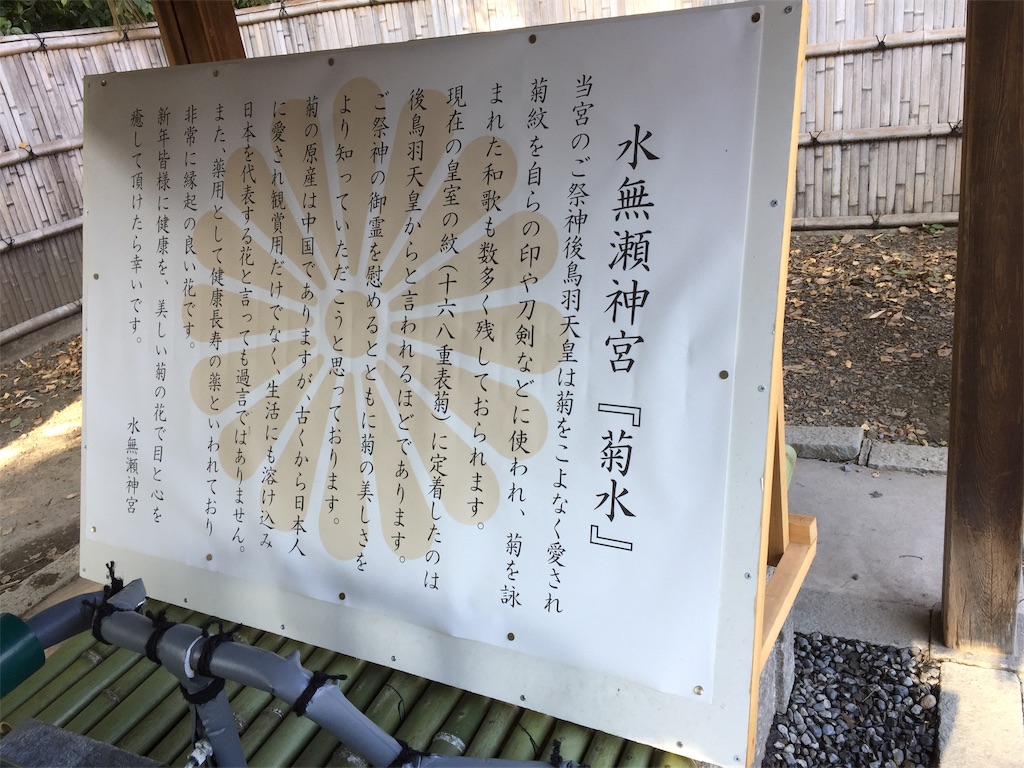 水無瀬神宮『菊水』
当宮のご祭神後鳥羽天皇は菊をこよなく愛され
菊紋を自らの印や刀剣などに使われ、菊を詠
まれた和歌も数多く残しておられます。
現在の皇室の紋(十六八重表菊)に定着したのは
後鳥羽天皇からと言われるほどであります。
ご祭神の御霊を慰めるとともに菊の美しさを
より知っていただこうと思っております。
菊の原産は中国でありますが、古くから日本人
に愛され観賞用だけでなく、生活にも溶け込み
日本を代表する花と言っても過言ではありません。
また、薬用として健康長寿の薬といわれており
非常に縁起の良い花です。
新年皆様に健康を、美しい菊の花で目と心を
癒して頂けたら幸いです。
水無瀬神宮